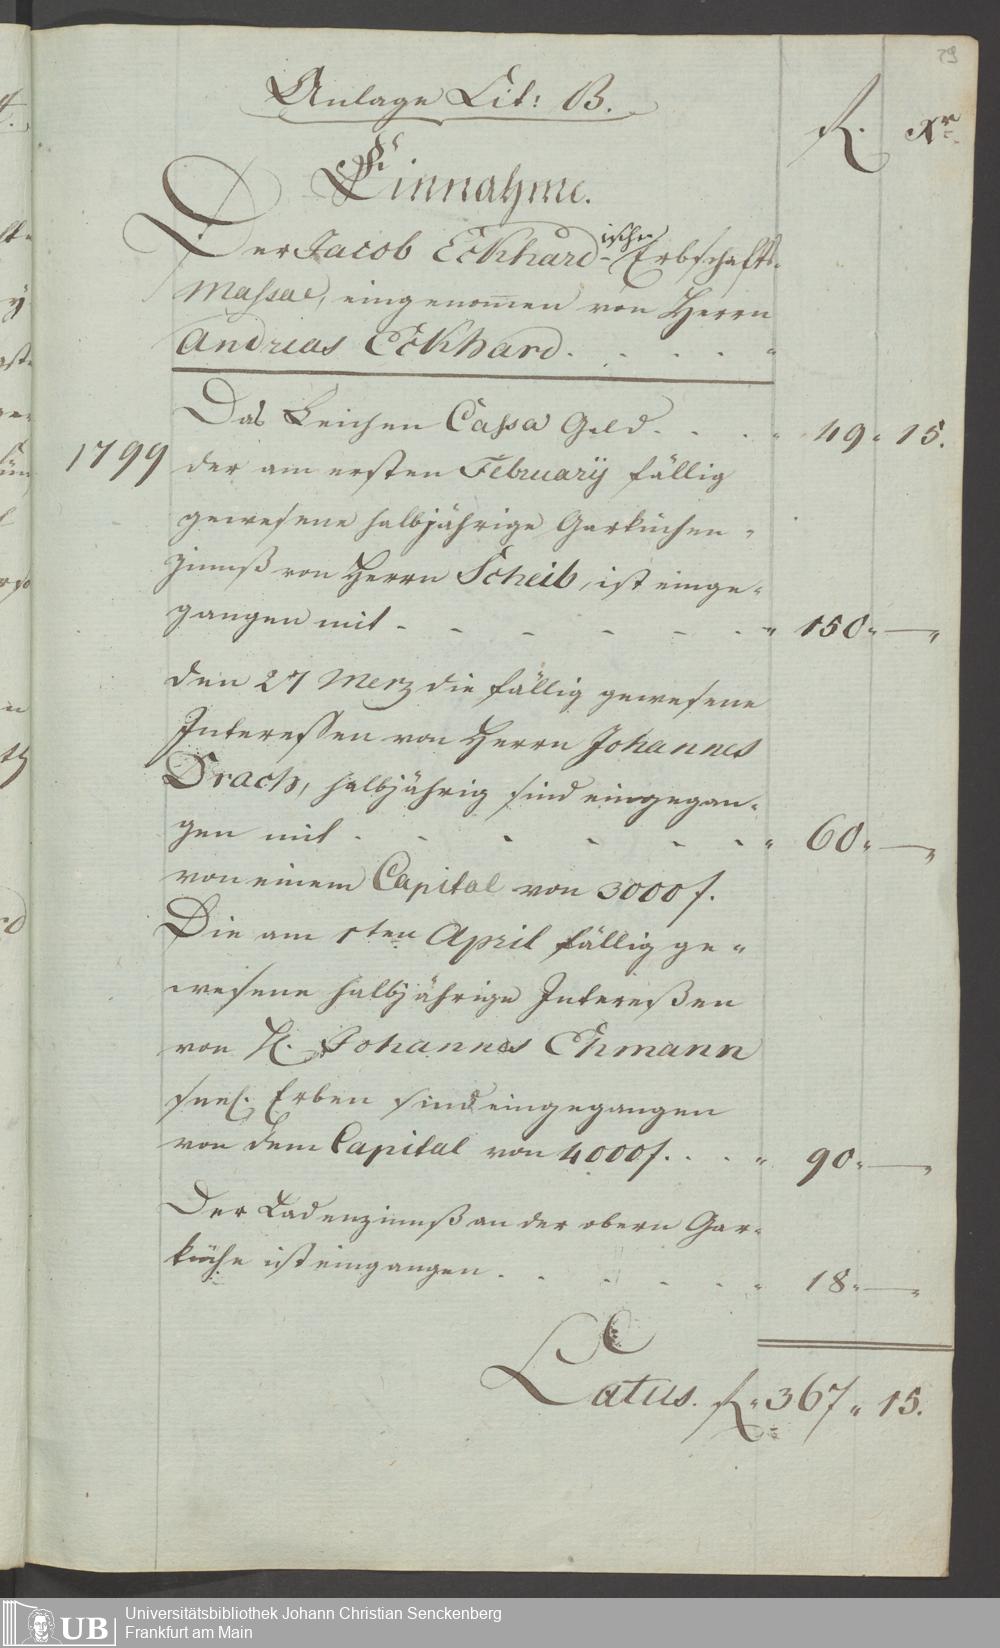 29
Anlage Lit: B.
fl. Xr.
Einnahme.
Der Jacob Eckhardischen Erbschafts-
Massae, eingenom̅en von Herrn
Andreas Eckhard. . . . . "
Das Leichen Cassa Geld. . . . " 49 " 15.
1799 der am ersten February fällig
gewesene halbjährige Garküchen-
zinnß von Herrn Scheib, ist einge-
gangen mit - - - - - - " 150 " — "
den 27 Merz die fällig gewesene
Interessen von Herrn Johannes
Drach, halbjährig sind eingegan-
gen mit - - - - - - " 60 " — "
von einem Capital von 3000 f.
Die am 1ten April fällig ge-
wesene halbjährige Intereßen
von H. Johannes Ehmann
seel. Erben sind eingegangen
von dem Capital von 4000 f. . . . " 90 " — "
Der Ladenzinnß an der obern Gar-
küche ist eingangen . . . . . " 18 " — "
Latus. fl " 367 " 15.
UB
Universitätsbibliothek Johann Christian Senckenberg
Frankfurt am Main